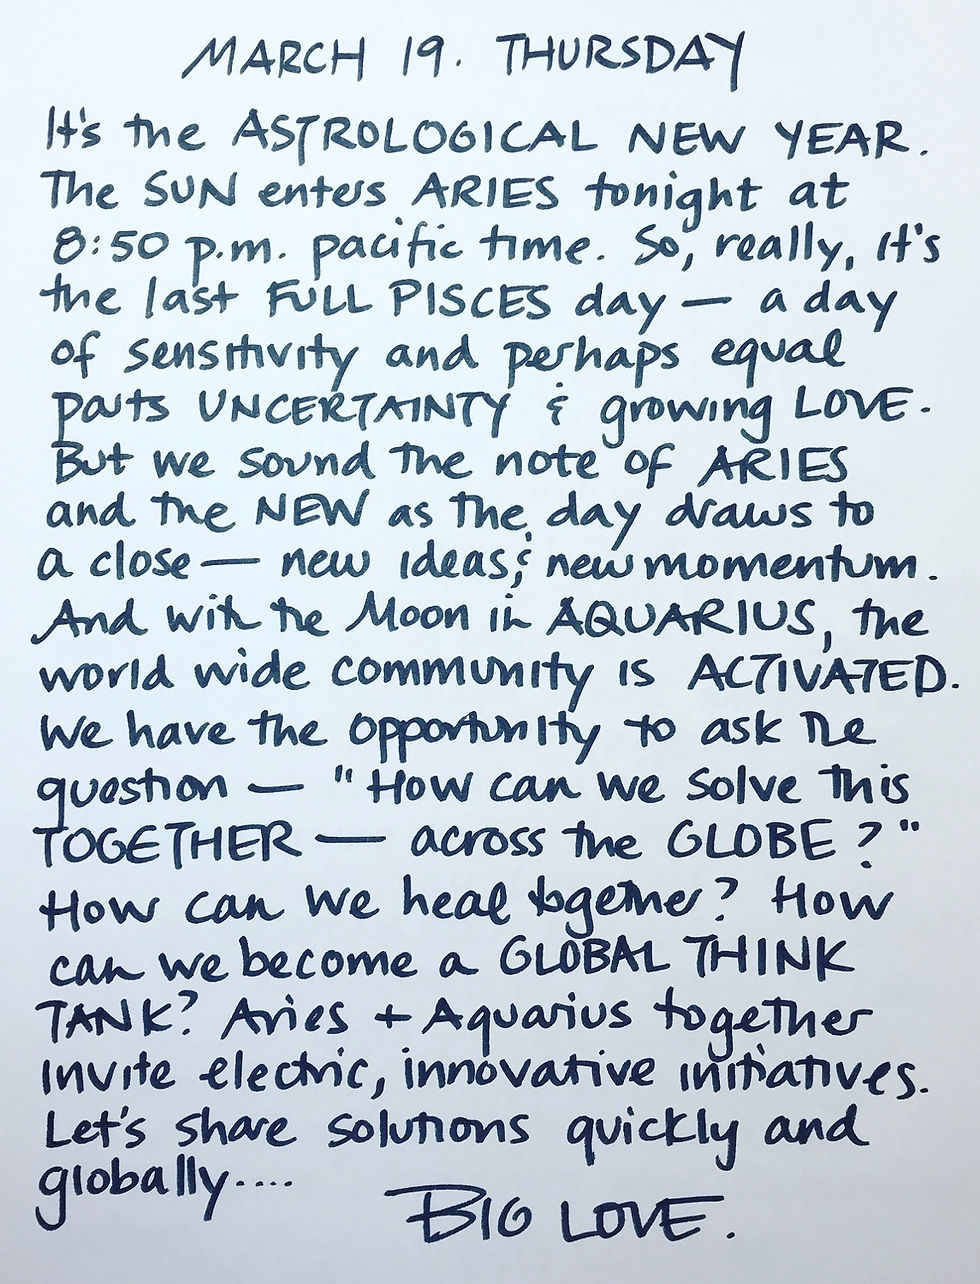 MARCH 19. THURSDAY
It's the ASTROLOGICAL NEW YEAR.
The SUN enters ARIES tonight at
8:50 p.m. pacific time. So, really, it's
the last FULL PISCES day — a day
of sensitivity and perhaps equal
parts UNCERTAINTY & growing LOVE.
But we sound the note of ARIES
and the NEW as the day draws to
a close — new ideas & new momentum.
And with the Moon in AQUARIUS, the
world wide community is ACTIVATED.
We have the opportunity to ask the
question — "How can we solve this
TOGETHER — across the GLOBE?"
How can we heal together? How
can we become a GLOBAL THINK
TANK? Aries + Aquarius together
invite electric, innovative initiatives.
Let's share solutions quickly and
globally....
BIG LOVE.